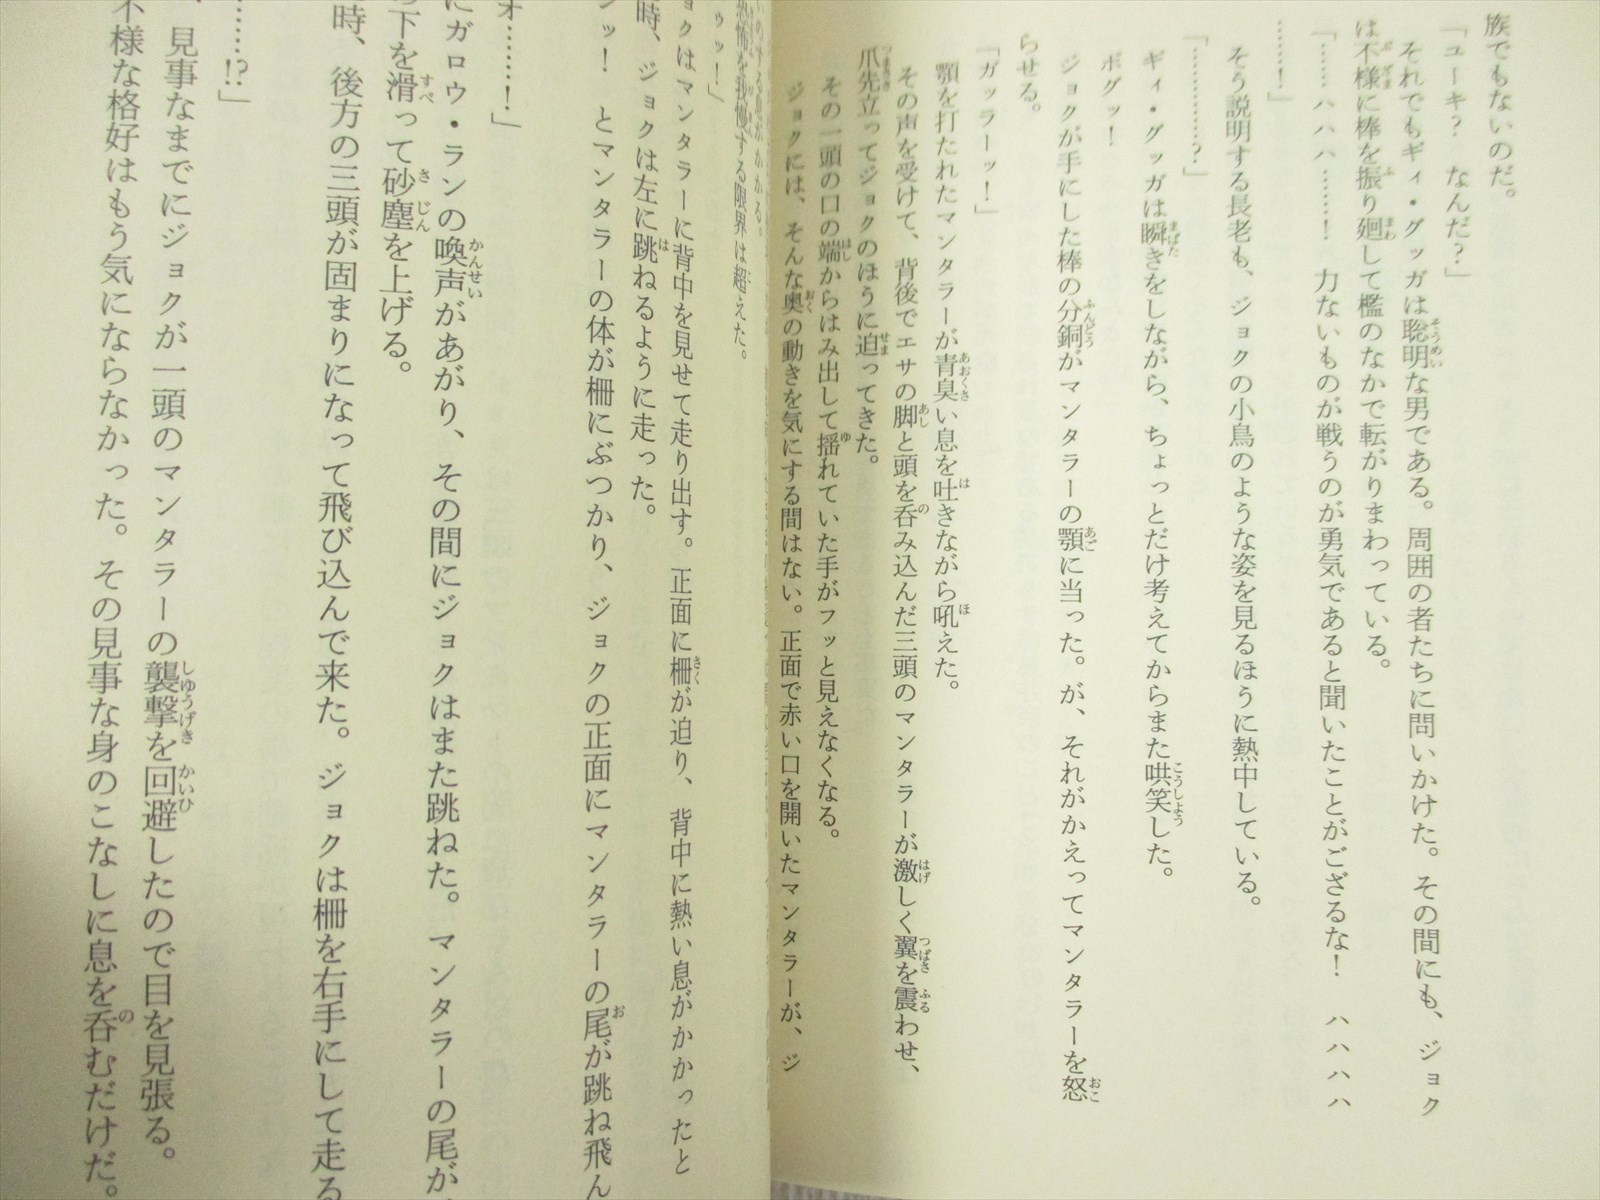 族でもないのだ。
「ユーキ？　なんだ？」
それでもギィ・グッガは聡明な男である。周囲の者たちに問いかけた。その間にも、ジョク
は不様に棒を振り廻して檻のなかで転がりまわっている。
「……ハハハ……！　力ないものが戦うのが勇気であると聞いたことがござるな！　ハハハハ
……！」
そう説明する長老も、ジョクの小鳥のような姿を見るほうに熱中している。
「…………？」
ギィ・グッガは瞬きをしながら、ちょっとだけ考えてからまた哄笑した。
ボグッ！
ジョクが手にした棒の分銅がマンタラーの顎に当った。が、それがかえってマンタラーを怒
らせる。
「ガッラーッ！」
顎を打たれたマンタラーが青臭い息を吐きながら吼えた。
その声を受けて、背後でエサの脚と頭を呑み込んだ三頭のマンタラーが激しく翼を震わせ、
爪先立ってジョクのほうに迫ってきた。
その一頭の口の端からはみ出して揺れていた手がフッと見えなくなる。
ジョクには、そんな奥の動きを気にする間はない。正面で赤い口を開いたマンタラーが、ジ
する限界は超えた。
ゥッ！」
ョクはマンタラーに背中を見せて走り出す。正面に柵が迫り、背中に熱い息がかかったと
時、ジョクは左に跳ねるように走った。
ッ！　とマンタラーの体が柵にぶつかり、ジョクの正面にマンタラーの尾が跳ね飛ん
オ……！」
にガロウ・ランの喚声があがり、その間にジョクはまた跳ねた。マンタラーの尾が、
の下を滑って砂塵を上げる。
時、後方の三頭が固まりになって飛び込んで来た。ジョクは柵を右手にして走る
……!?」
、見事なまでにジョクが一頭のマンタラーの襲撃を回避したので目を見張る。
不様な格好はもう気にならなかった。その見事な身のこなしに息を呑むだけだ。